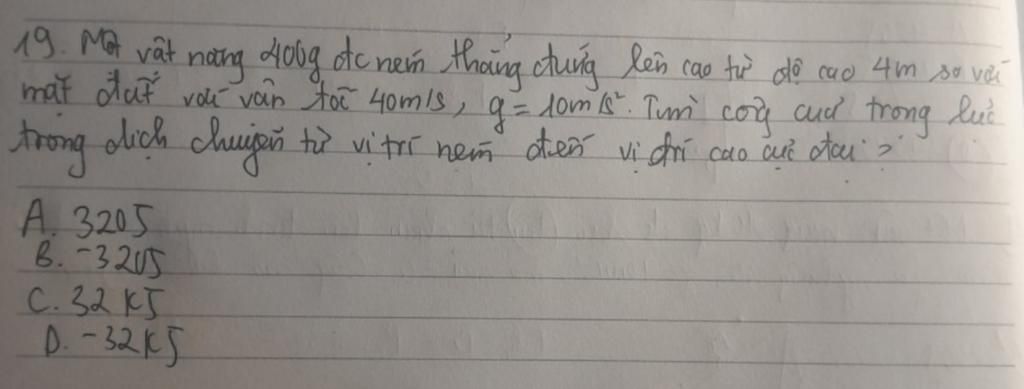 19. Một vật nặng 400g đc ném thẳng đứng lên cao từ độ cao 4m so với
mặt đất với vận tốc 40m/s, g = 10m/s². Tìm công của trọng lực
trong dịch chuyển từ vị trí ném đến vị trí cao cực đại ?
A. 320J
B. -320J
C. 32 KJ
D. -32KJ